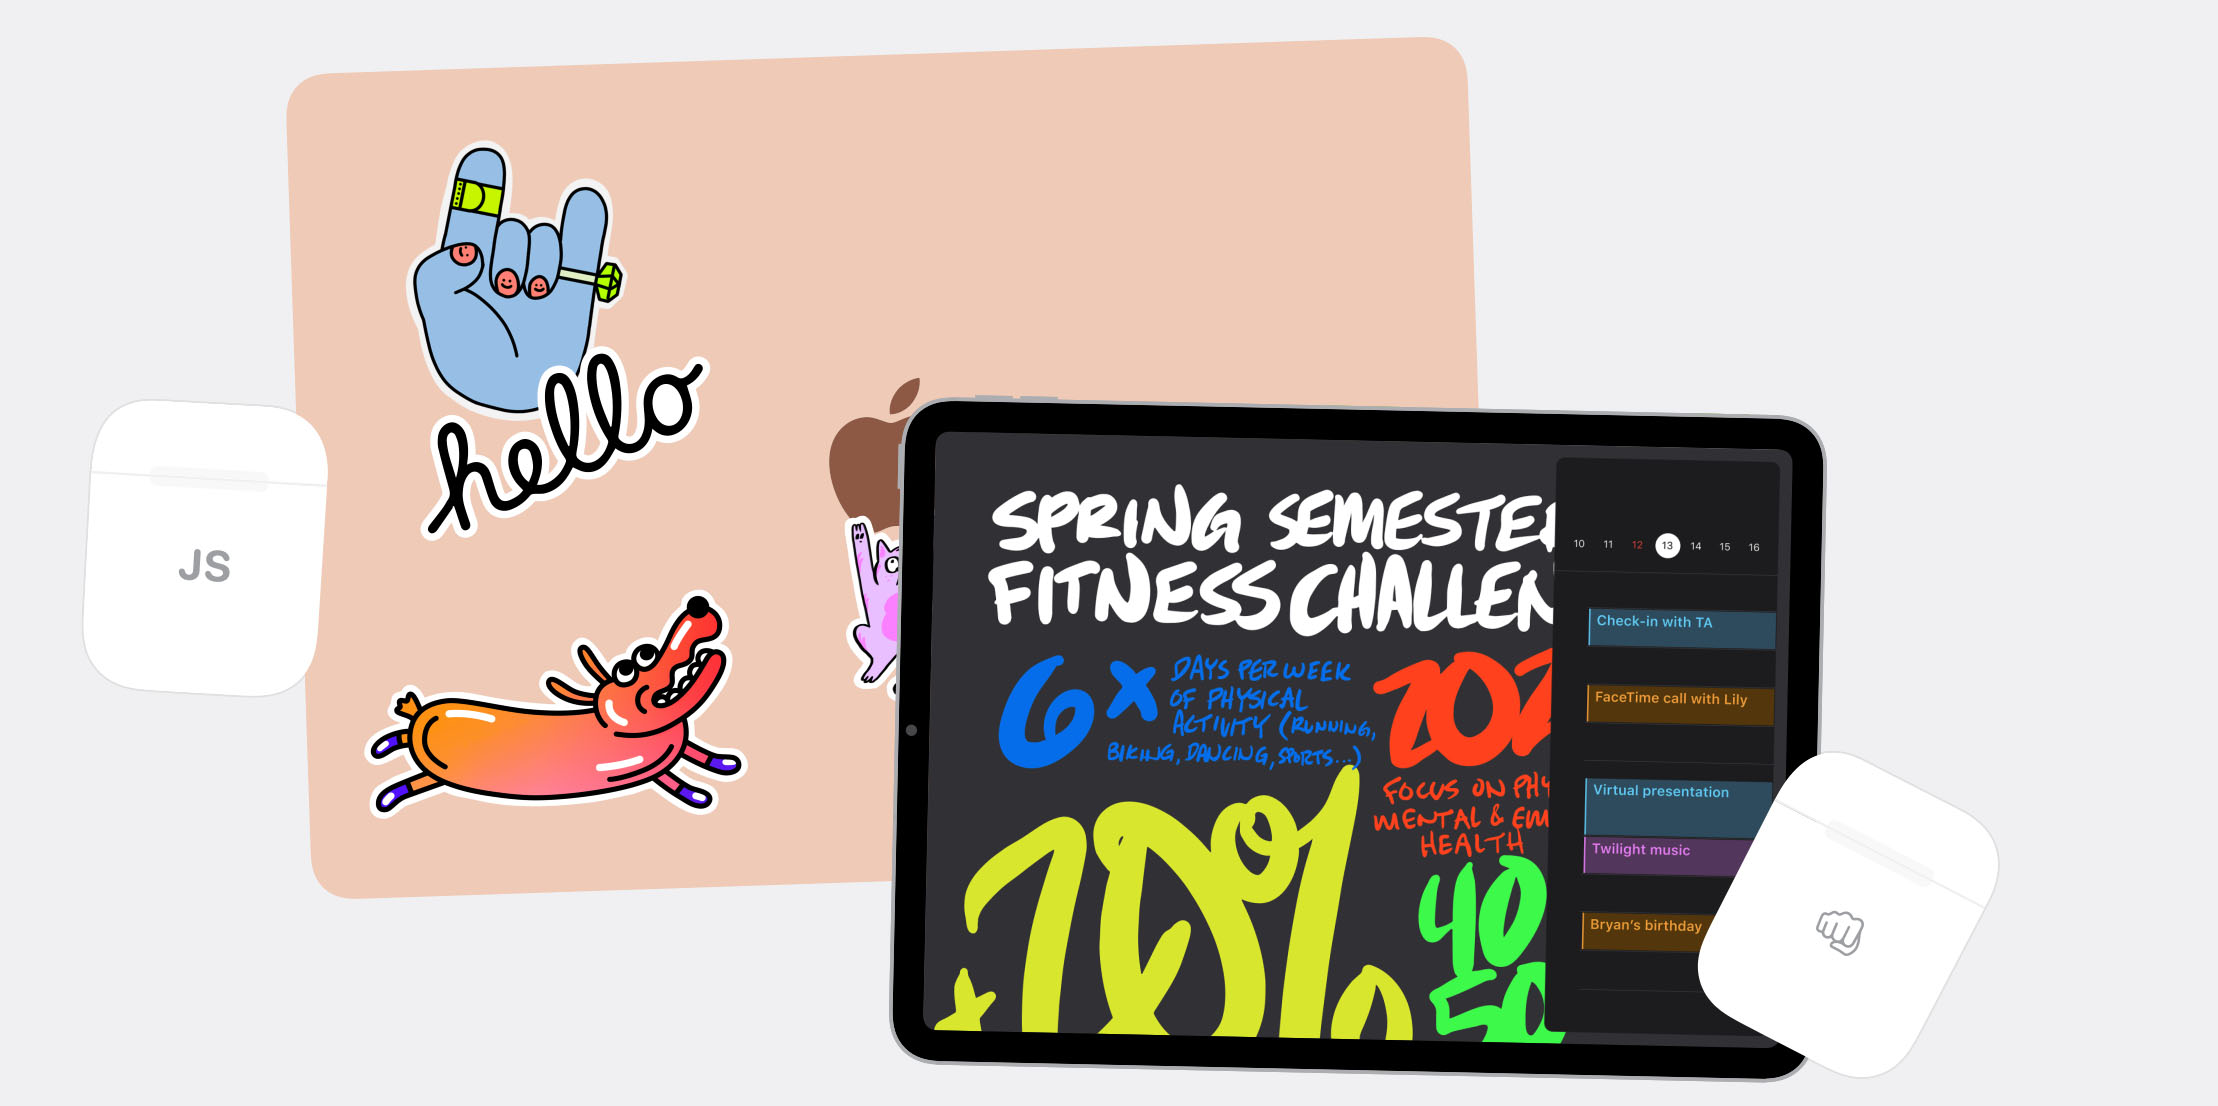 hello
JS
SPRING SEMESTER
FITNESS CHALLEN
6x DAYS PER WEEK
OF PHYSICAL
ACTIVITY (RUNNING,
BIKING, DANCING, SPORTS...)
202
FOCUS ON PHY
MENTAL & EM
HEALTH
40
50
10 11 12 13 14 15 16
Check-in with TA
FaceTime call with Lily
Virtual presentation
Twilight music
Bryan's birthday